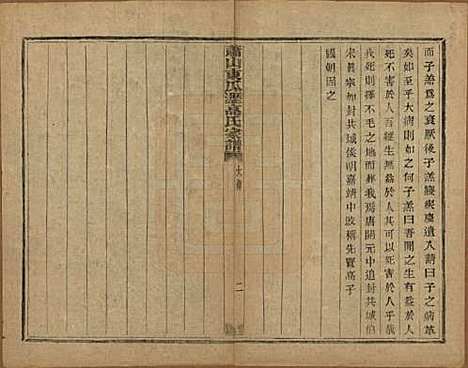 而子羔爲之衰厥後子羔寢疾慶遺入請曰子之病革
矣如至乎大病則如之何子羔曰吾聞之生有益於人
死不害於人吾縱生無益於人可以死害於人乎哉
我死則擇不毛之地而葬我焉唐開元中追封共城伯
宋眞宗加封共城侯明嘉靖中改稱先賢高子
國朝因之
蕭山東瓜瀝高氏家譜
二